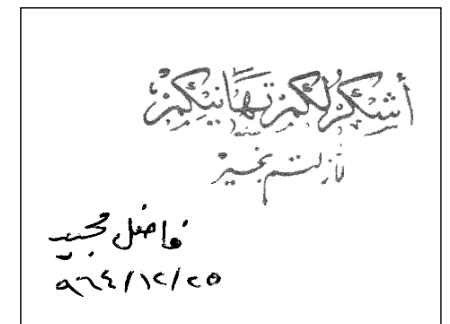 أشكر لكم تهانيكم
مازلتم بخير
فاضل مجيد
٩٦٤/١٢/٢٥